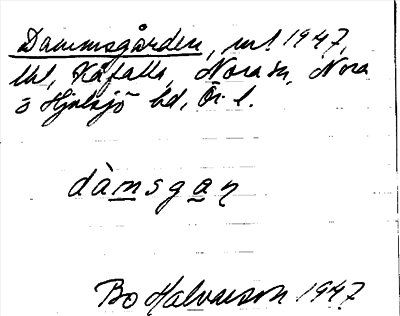 Dammsgården, url 1947,
Ul, Kåfalla, Nora sn, Nora
o Hjulsjö bd, Ör. l.
dàmsgaɳ
Bo Halvarson 1947